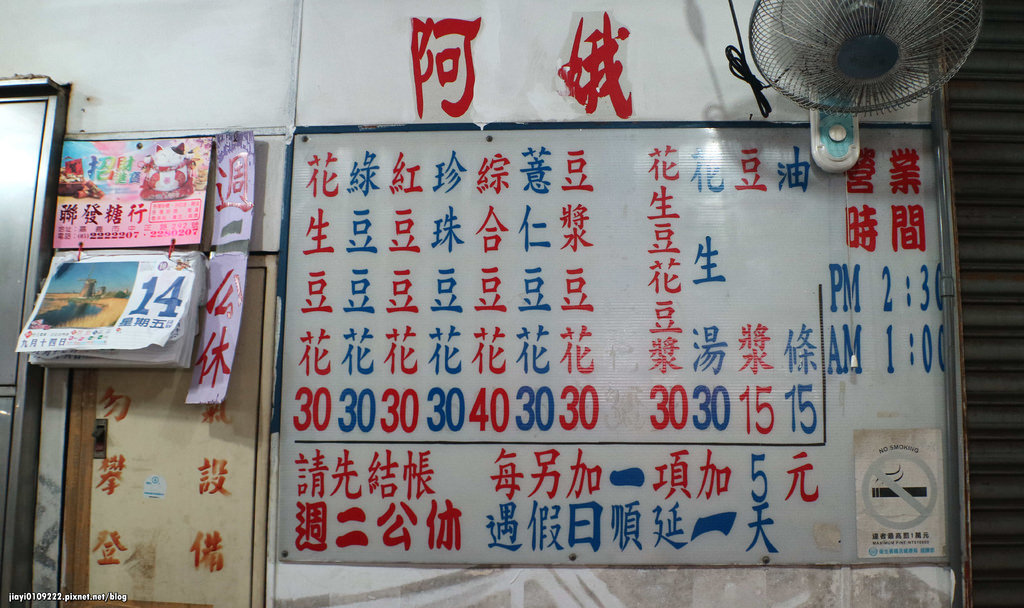 阿娥
花生豆花 30
綠豆豆花 30
紅豆豆花 30
珍珠豆花 30
綜合豆花 40
薏仁豆花 30
豆漿豆花 30
花生豆花豆漿 30
花生湯 30
豆漿 15
油條 15
請先結帳 每另加一項加5元
週二公休 遇假日順延一天
營業時間
PM 2:30
AM 1:00
NO SMOKING
違者最高罰1萬元
MAXIMUM FINE NT$10000
聯發糖行
2222207・2280207
14
星期五
九月十四日
週一公休
勿攀登
設備
jiayi0109222.pixnet.net/blog